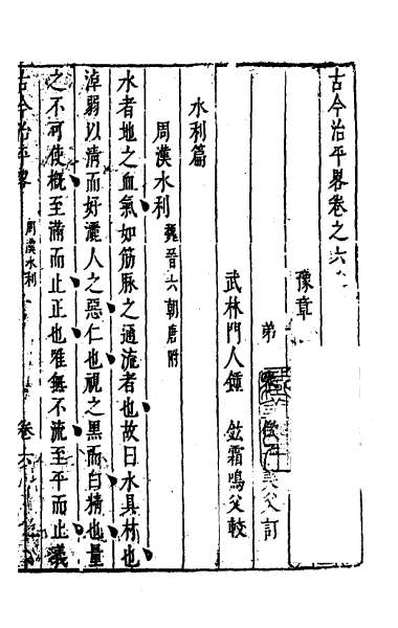 古今治平畧卷之六
豫章
弟
父訂
武林門人鍾 鈜霜鳴父較
水利篇
周漢水利 魏晉六朝唐附
水者地之血氣如筋脉之通流者也故曰水具材也
淖弱以清而好灑人之惡仁也視之黑而白精也量
之不可使概至滿而止正也唯無不流至平而止義
古今治平畧
周漢水利
卷六